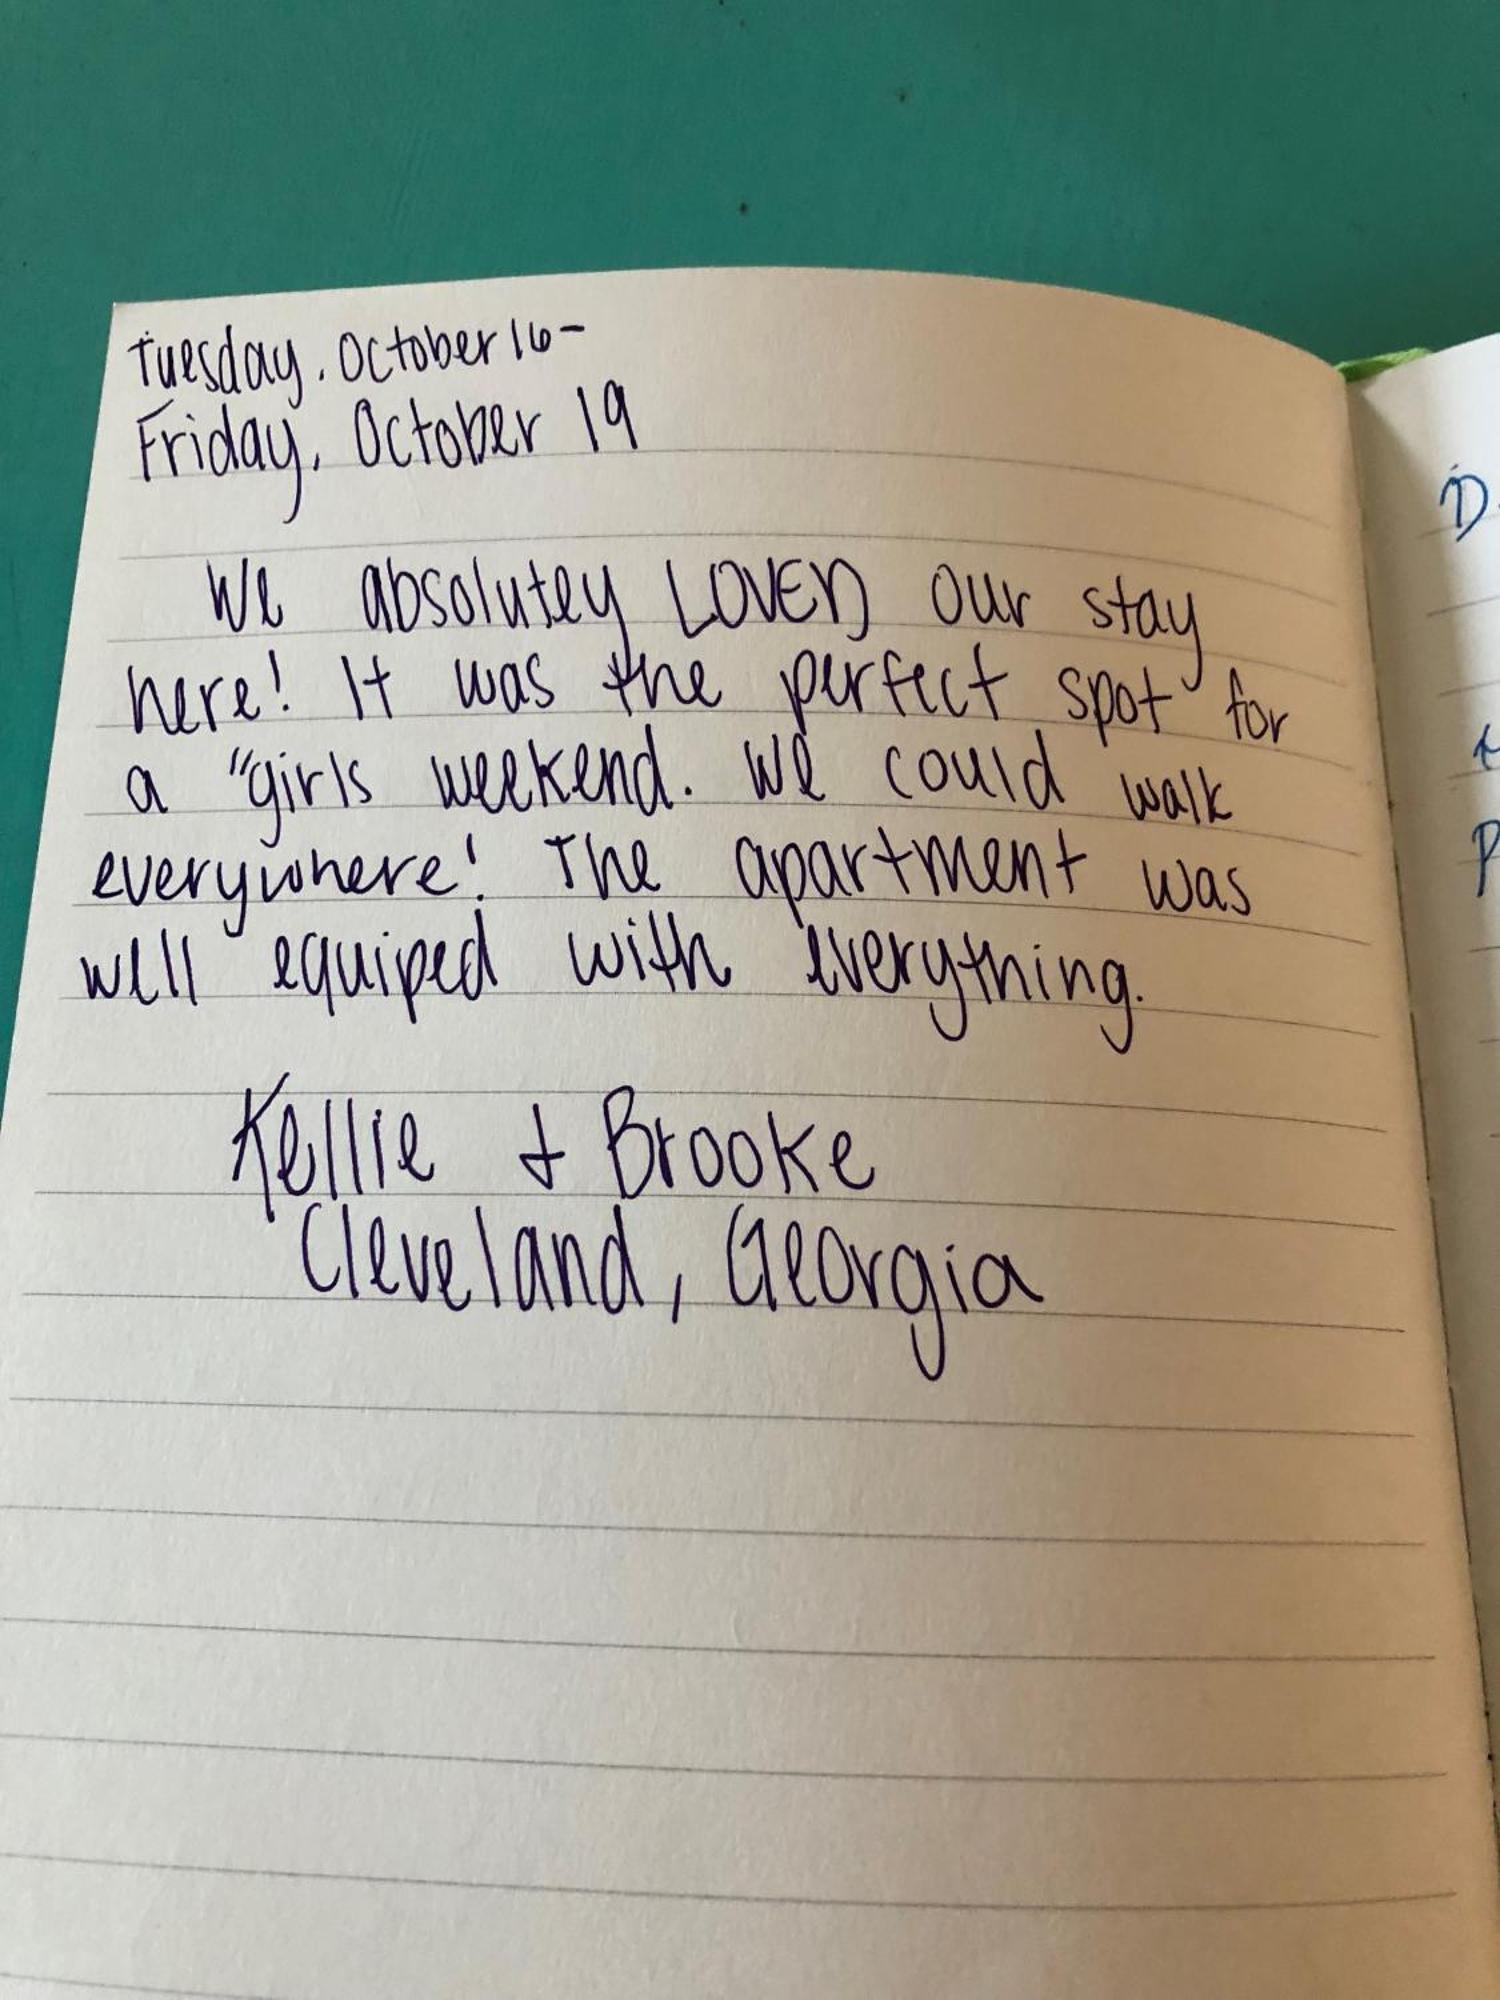 Tuesday, October 16-
Friday, October 19
We absolutey LOVED our stay
here! It was the perfect spot for
a "girls weekend. We could walk
everywhere! The apartment was
well equiped with everything.
Kellie & Brooke
Cleveland, Georgia
D
P